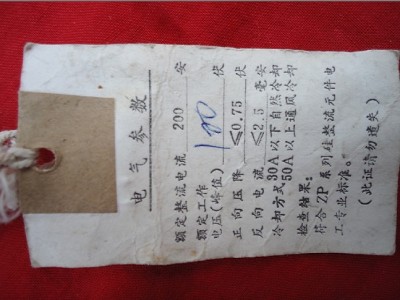 电气参数
额定整流电流 200 安
额定工作
电压(峰值) 100 伏
正向压降 ≤0.75 伏
反向电流 ≤2.5 毫安
冷却方式 30A以下自然冷却
50A以上通风冷却
检查结果:
符合ZP系列硅整流元件电
工专业标准。
(此证请勿遗失)